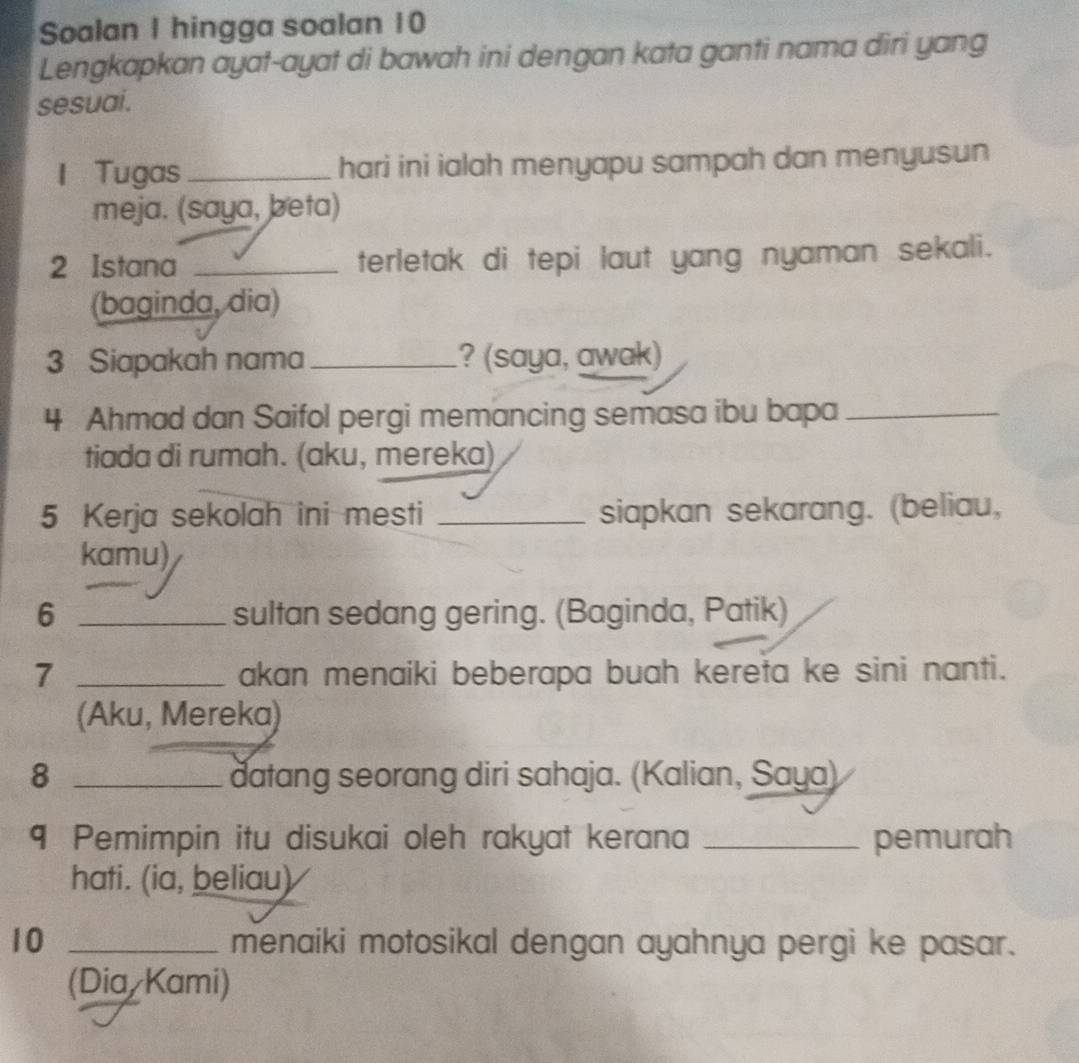 Soalan 1 hingga soalan 10
Lengkapkan ayat-ayat di bawah ini dengan kata ganti nama diri yang
sesuai.
1 Tugas __________ hari ini ialah menyapu sampah dan menyusun
meja. (saya, beta)
2 Istana __________ terletak di tepi laut yang nyaman sekali.
(baginda, dia)
3 Siapakah nama __________? (saya, awak)
4 Ahmad dan Saifol pergi memancing semasa ibu bapa __________
tiada di rumah. (aku, mereka)
5 Kerja sekolah ini mesti __________ siapkan sekarang. (beliau,
kamu)
6 __________ sultan sedang gering. (Baginda, Patik)
7 __________ akan menaiki beberapa buah kereta ke sini nanti.
(Aku, Mereka)
8 __________ datang seorang diri sahaja. (Kalian, Saya)
9 Pemimpin itu disukai oleh rakyat kerana __________ pemurah
hati. (ia, beliau)
10 __________ menaiki motosikal dengan ayahnya pergi ke pasar.
(Dia, Kami)